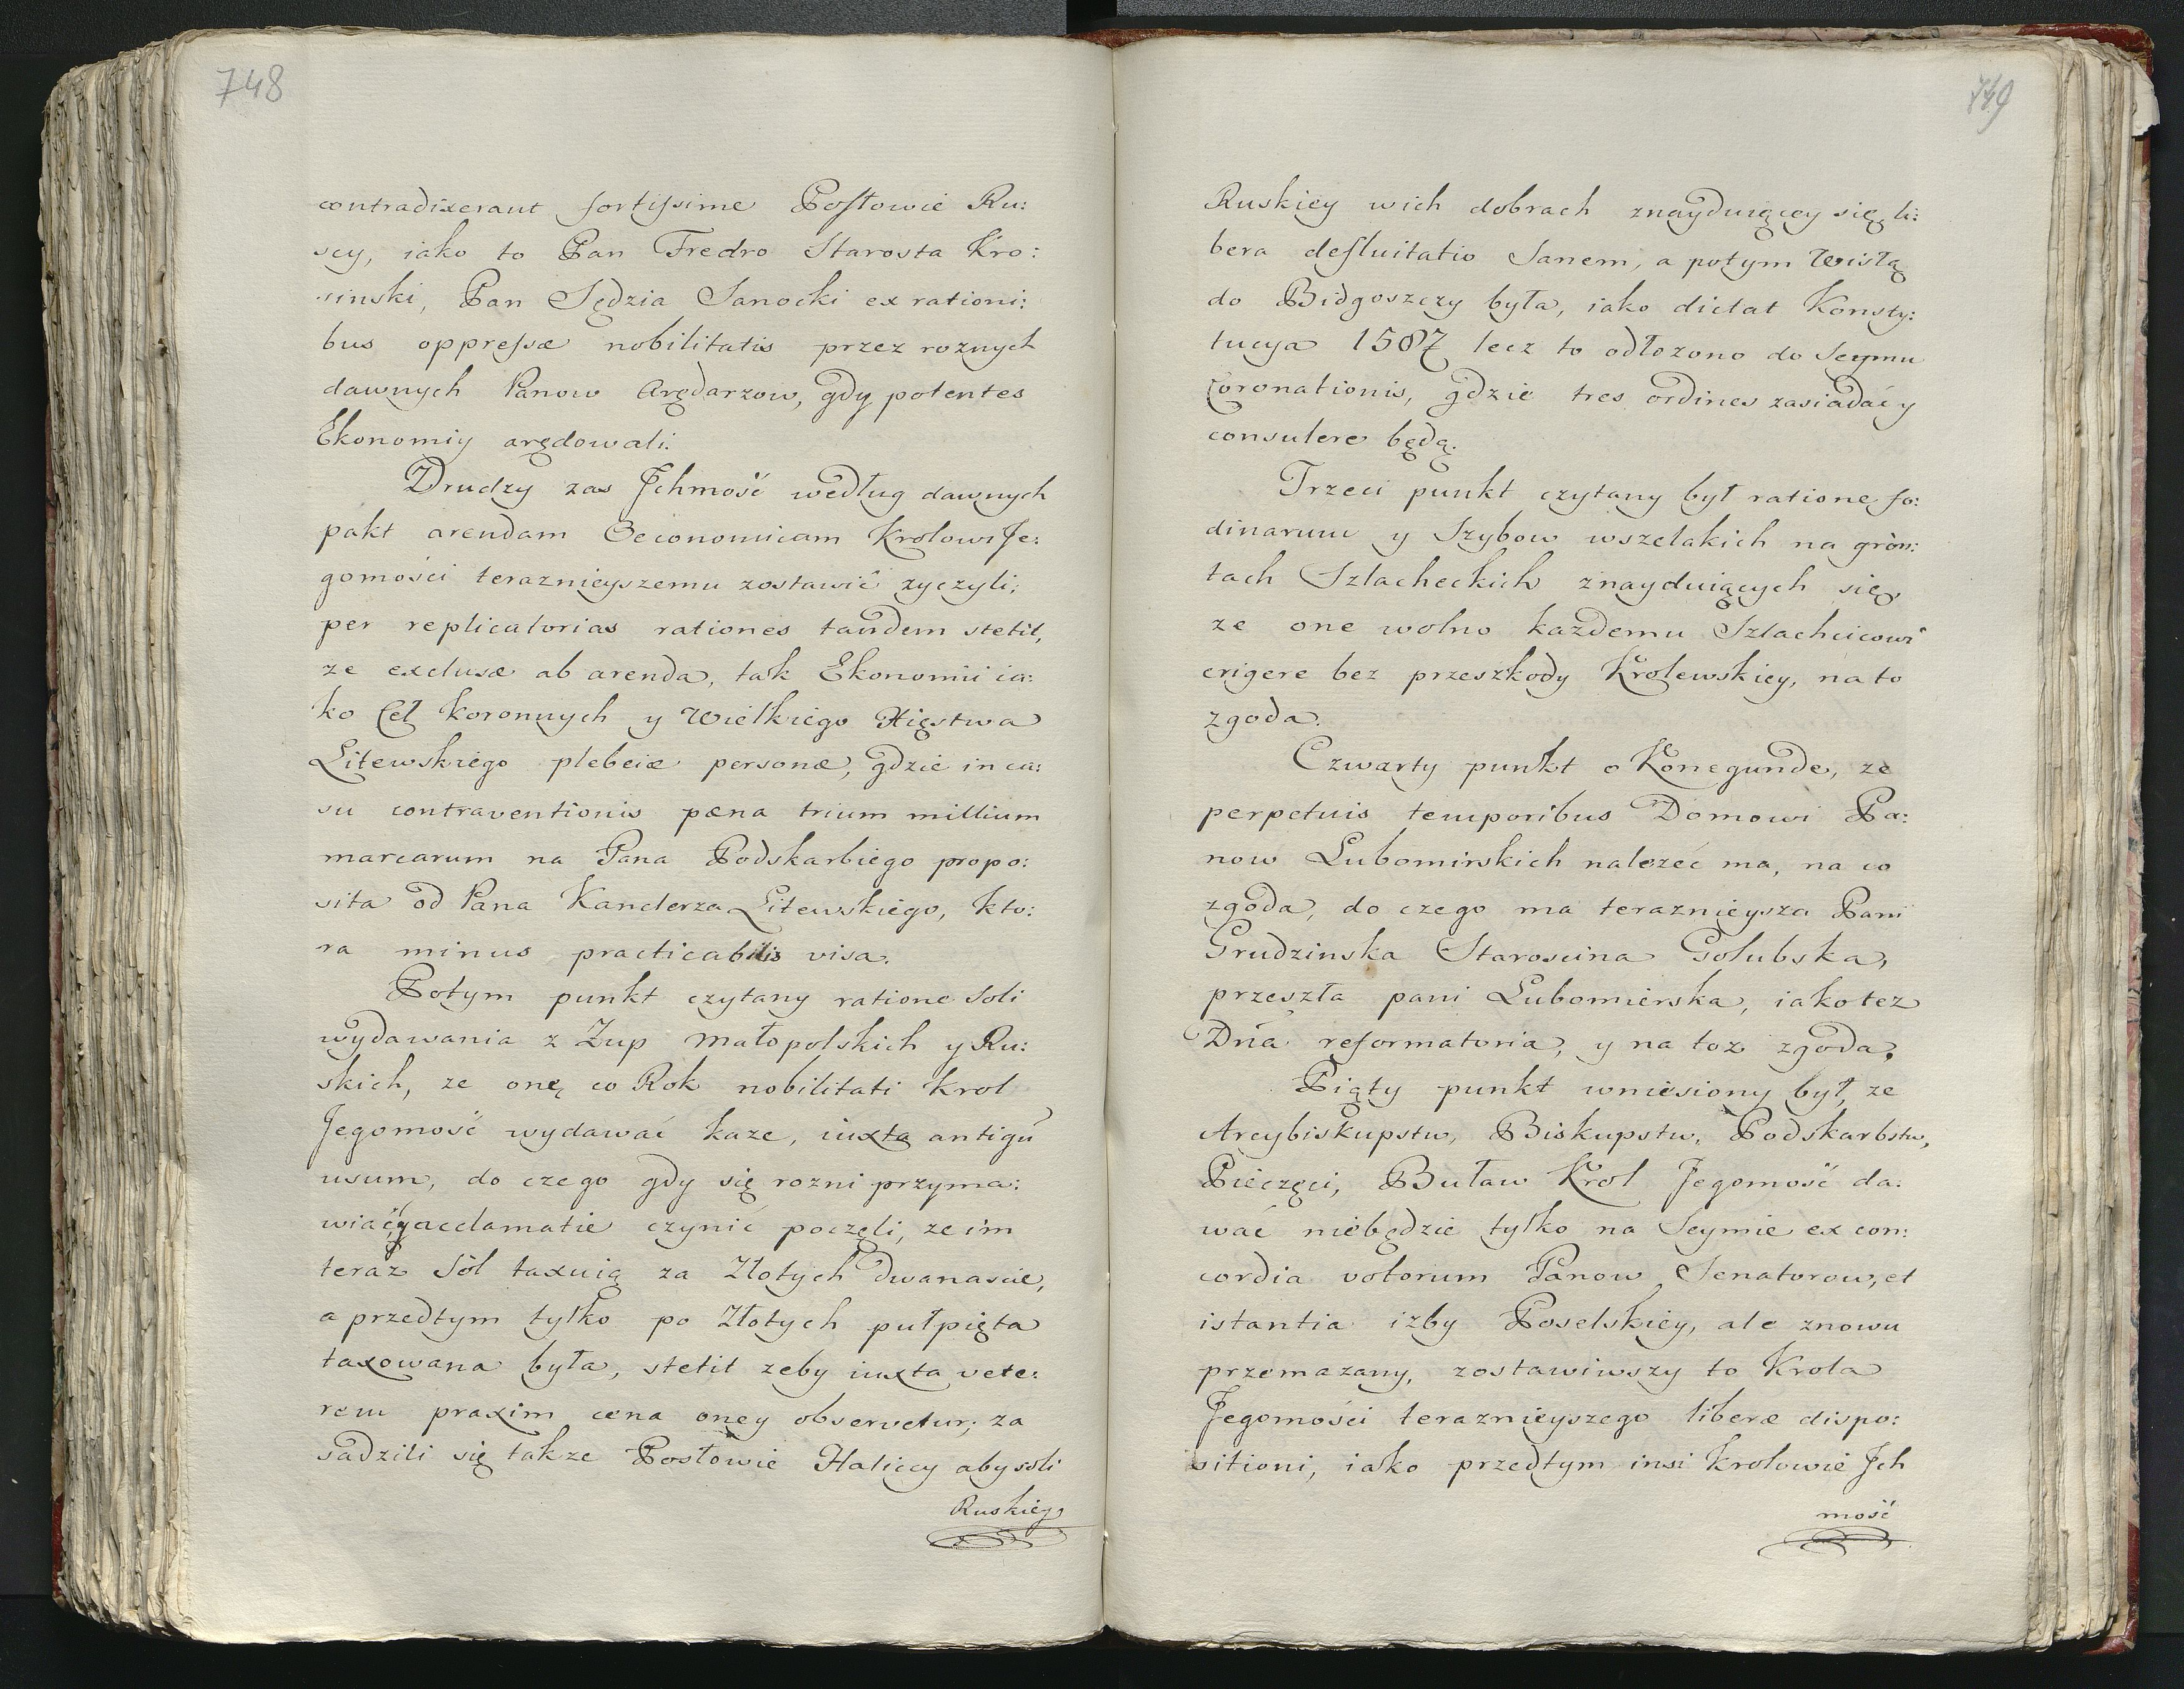 748
contradixerant fortissime Posłowie Ru:
scy, iako to Pan Fredro Starosta Kro:
sinski, Pan Sędzia Sanocki ex rationi:
bus oppressæ nobilitatis przez roznych
dawnych Panow Arędarzow, gdy potentes
Ekonomiy arędowali.
Drudzy zas Jchmość według dawnych
pakt arendam Oeconomicam Krolowi Je:
gomości teraznieyszemu zostawić zyczyli;
per replicatorias rationes tandem stetit,
ze exclusæ ab arenda, tak Ekonomii ia:
ko Cel koronnych y Wielkiego Xięstwa
Litewskiego plebeiæ personæ, gdzie in ca:
su contraventionis pæna trium millium
marcarum na Pana Podskarbiego propo:
sita od Pana Kanclerza Litewskiego, kto:
ra minus practicabilis visa.
Potym punkt czytany ratione Soli
wydawania z Zup małopolskich y Ru:
skich, ze onę co Rok nobilitati Krol
Jegomość wydawać kaze, iuxta antiqũ
usum, do czego gdy się rozni przyma:
wiać y acclamatie czynić poczęli, ze im
teraz Sól taxuią za Złotych dwanascie,
a przedtym tylko po Złotych pułpięta
taxowana była, stetit zeby iuxta vete:
rem praxim cena oney observetur; za
sadzili się takze Posłowie Haliccy aby soli
Ruskiey
749
Ruskiey wich dobrach znayduiącey się li:
bera defluitatio Sanem, a potym Wisłą
do Bidgoszczy była, iako dictat Konsty:
tucya 1587 lecz to odłozono do Seymu
Coronationis, gdzie tres ordines zasiadać y
consulere będą.
Trzeci punkt czytany był ratione fo:
dinarum y Szybow wszelakich na gròn:
tach Szlacheckich znayduiących się,
ze one wolno kazdemu Szlachcicowi
erigere bez przeszkody Krolewskiey, na to
zgoda.
Czwarty punkt o Konegunde, ze
perpetuis temporibus Domowi Pa:
now Lubomirskich nalezeć ma, na co
zgoda, do czego ma teraznieysza Pani
Grudzinska Staroscina Golubska,
przeszła pani Lubomierska, iako tez
Dña reformatoria, y na toz zgoda.
Piąty punkt wniesiony był, ze
Arcybiskupstw, Biskupstw, Podskarbstw,
Pieczęci, Buław Krol Jegomość da:
wać niebędzie tylko na Seymie ex con:
cordia votorum Panow Senatorow, et
istantia izby Poselskiey, ale znowu
przemazany, zostawiwszy to Krola
Jegomości teraznieyszego liberæ dispo:
sitioni, iako przedtym insi Krolowie Jch
mość